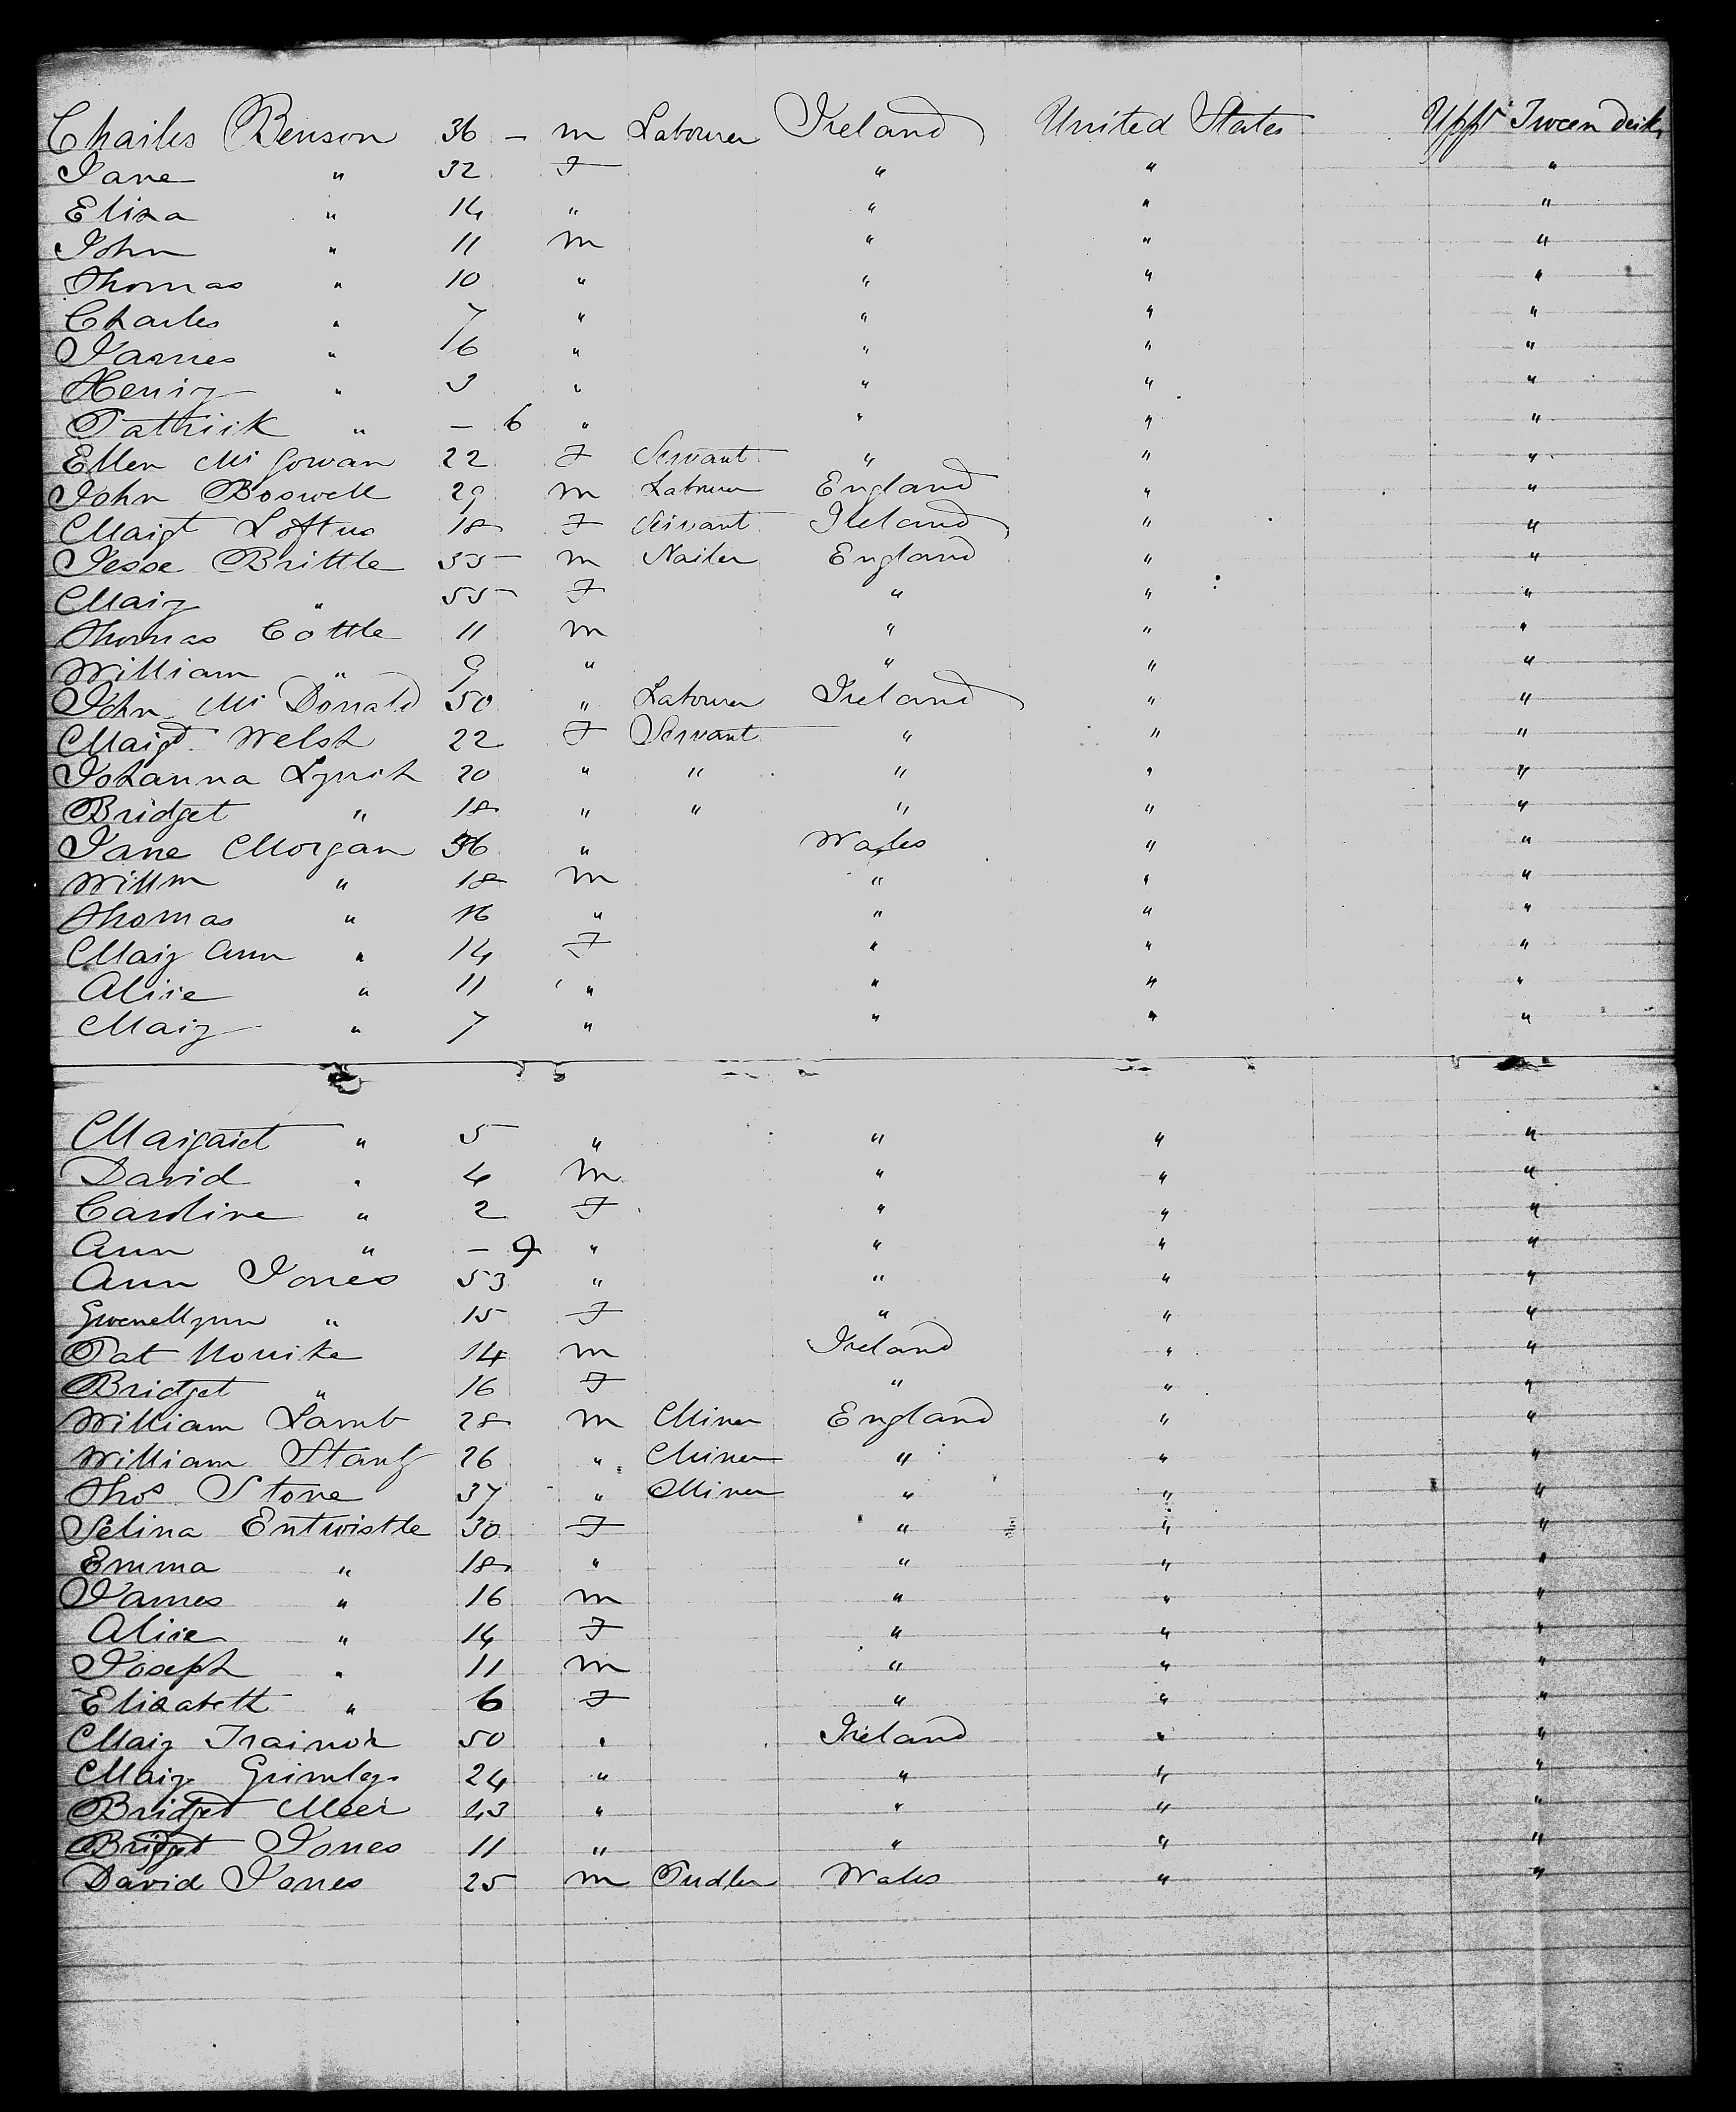 Charles Benson 36 – m Labourer Ireland United States Uppr Tween deck
Jane " 32 F " " "
Eliza " 14 " " " "
John " 11 m " " "
Thomas " 10 " " " "
Charles " 7 " " " "
James " 6 " " " "
Henry " 3 " " " "
Patrick " – 6 " " " "
Ellen McGowan 22 F Servant " " "
John Boswell 29 m Labourer England " "
Margt Loftus 18 F Servant Ireland " "
Jesse Brittle 55 m Nailer England " "
Mary " 55 F " " "
Thomas Cottle 11 m " " "
William " 9 " " " "
John McDonald 50 " Labourer Ireland " "
Margt Welsh 22 F Servant " " "
Johanna Lynch 20 " " " " "
Bridget " 18 " " " " "
Jane Morgan 36 " Wales " "
Willm " 18 m " " "
Thomas " 16 " " " "
Mary Ann " 14 F " " "
Alice " 11 " " " "
Mary " 7 " " " "
Margaret " 5 " " " "
David " 4 m " " "
Caroline " 2 F " " "
Ann " – 9 " " " "
Ann Jones 53 " " " "
Gwenllynn " 15 F " " "
Pat 14 m Ireland " "
Bridget " 16 F " " "
William Lamb 28 m Miner England " "
William 26 " Miner " " "
Thos Stone 37 " Miner " " "
Selina Entwistle 30 F " " "
Emma " 18 " " " "
James " 16 m " " "
Alice " 14 F " " "
Joseph " 11 m " " "
Elizabeth " 6 F " " "
Mary Trainor 50 " Ireland " "
Mary Grimley 24 " " " "
Bridget Meer 43 " " " "
Bridget Jones 11 " " " "
David Jones 25 m Pudler Wales " "